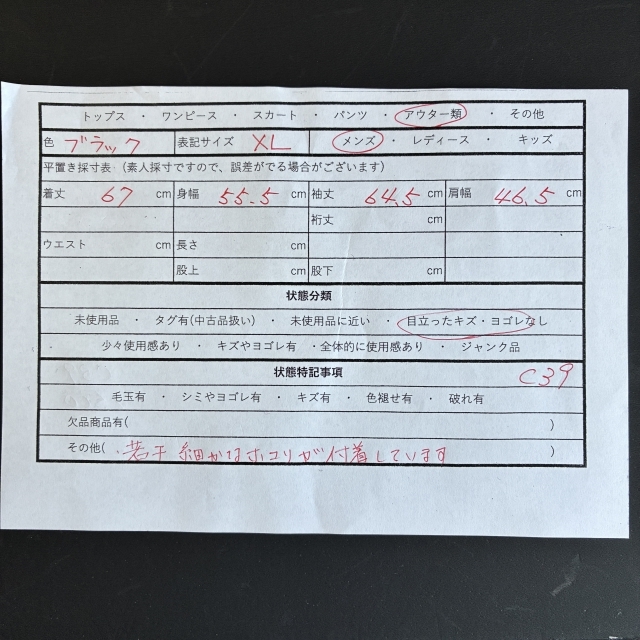 トップス ・ ワンピース ・ スカート ・ パンツ ・ アウター類 ・ その他
色 ブラック 表記サイズ XL メンズ ・ レディース ・ キッズ
平置き採寸表 (素人採寸ですので、誤差がでる場合がございます)
着丈 67 cm 身幅 55.5 cm 袖丈 64.5 cm 肩幅 46.5 cm
裄丈 cm
ウエスト cm 長さ cm
股上 cm 股下 cm
状態分類
未使用品 ・ タグ有(中古品扱い) ・ 未使用品に近い ・ 目立ったキズ・ヨゴレなし
少々使用感あり ・ キズやヨゴレ有 ・全体的に使用感あり ・ ジャンク品
状態特記事項 C39
毛玉有 ・ シミやヨゴレ有 ・ キズ有 ・ 色褪せ有 ・ 破れ有
欠品商品有( )
その他( ・若干 細かなホコリが付着しています )